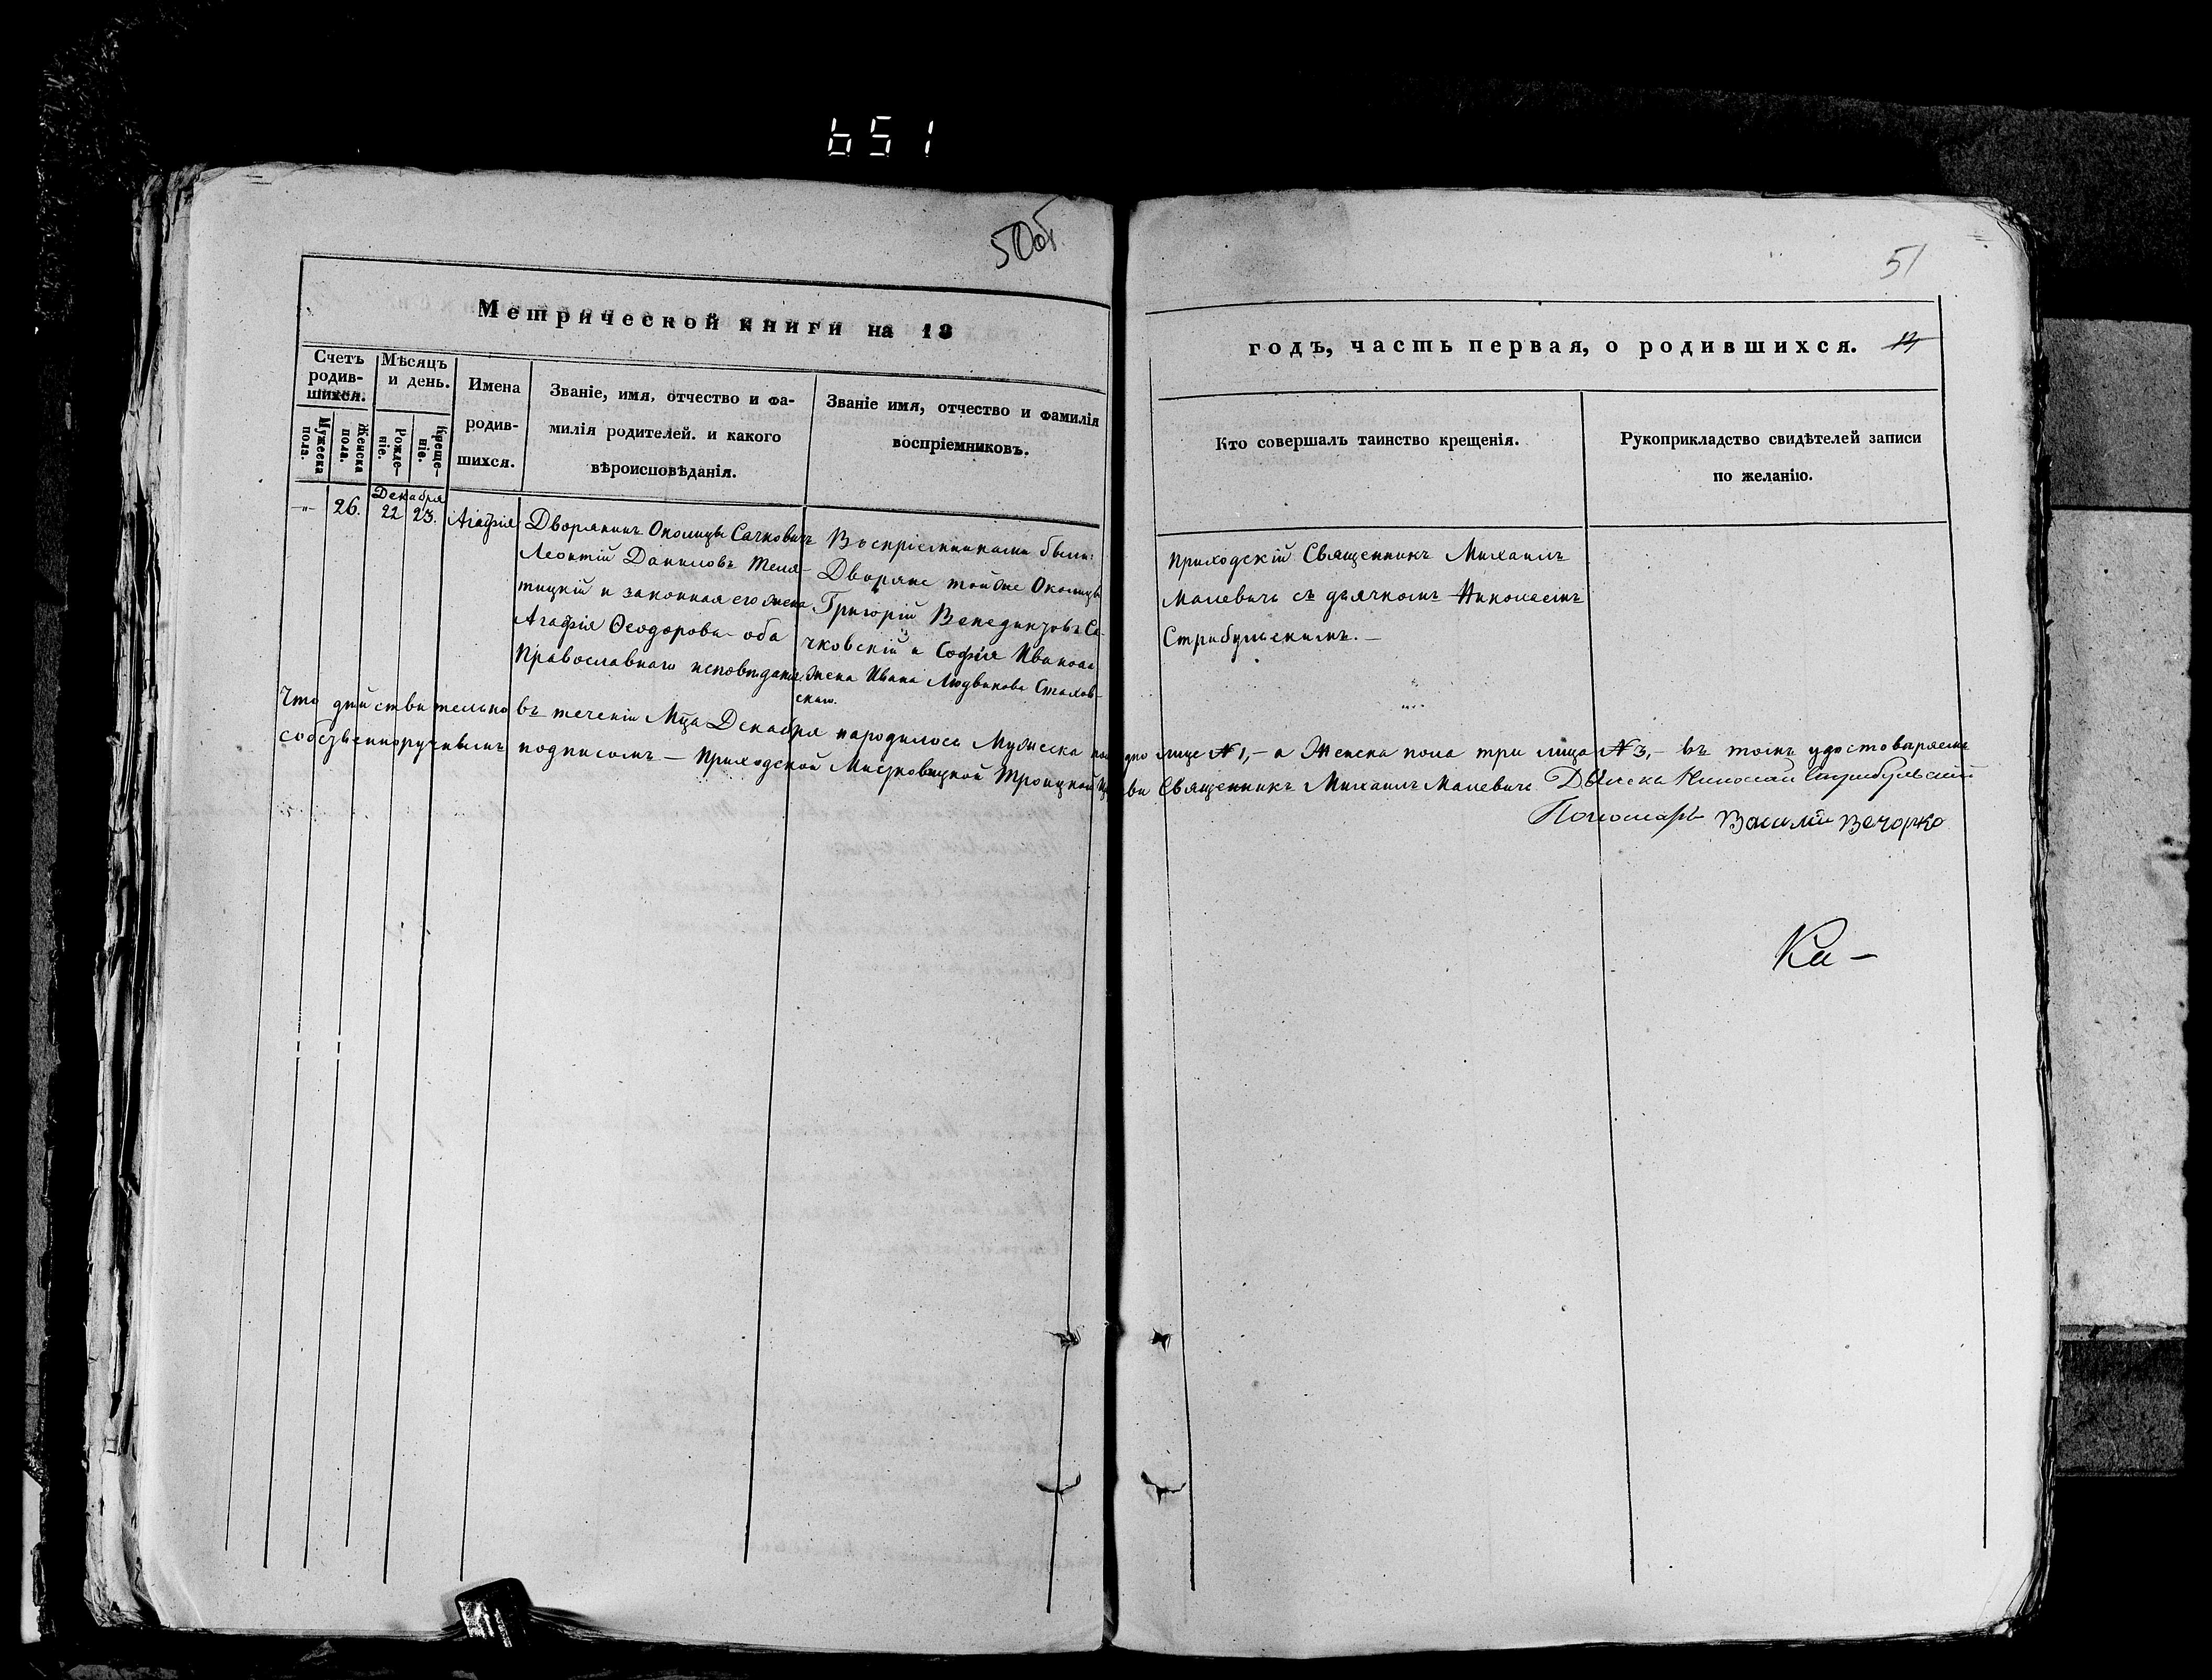 651
50об
51
Метрической книги на 18
годъ, часть первая, о родившихся.
Счетъ родив-шихся.
Мѣсяцъ и день.
Имена родив-шихся.
Званіе, имя, отчество и фа-
милія родителей. и какого
вѣроисповѣданія.
Званіе имя, отчество и фамилія
воспріемниковъ.
Кто совершалъ таинство крещенія.
Рукоприкладство свидѣтелей записи
по желанію.
Мужеска пола.
Женска пола.
Рожде-ніе.
Креще-ніе.
Декабря
-"- 26. 22 23. Агафія
Дворянинъ Околицы Сачковичъ
Леонтій Даниловъ Теля-
тицкій и законная его жена
Агафія Ѳеодорова оба
Православнаго исповѣданія.
Воспріемниками были:
Дворяне той же Околицы
Григорій Венедиктовъ Са-
чковскій и Софія Иванова
жена Ивана Людвикова Стахов-
скаго.
Приходскій Священникъ Михаилъ
Малевичъ съ дьячкомъ Николаемъ
Стрибульскимъ.—
Что дѣйствительно въ теченіи Мца Декабря народилось Мужеска пол дно лице №1,– а Женска пола три лица №3,– въ томъ удостовѣряемъ
собственноручнымъ подписомъ – Приходской Троицкой Цр ви Священникъ Михаилъ Малевичъ Дьячекъ Николай Стрибульскій
Пономарь Василій Вечорко
Ка–